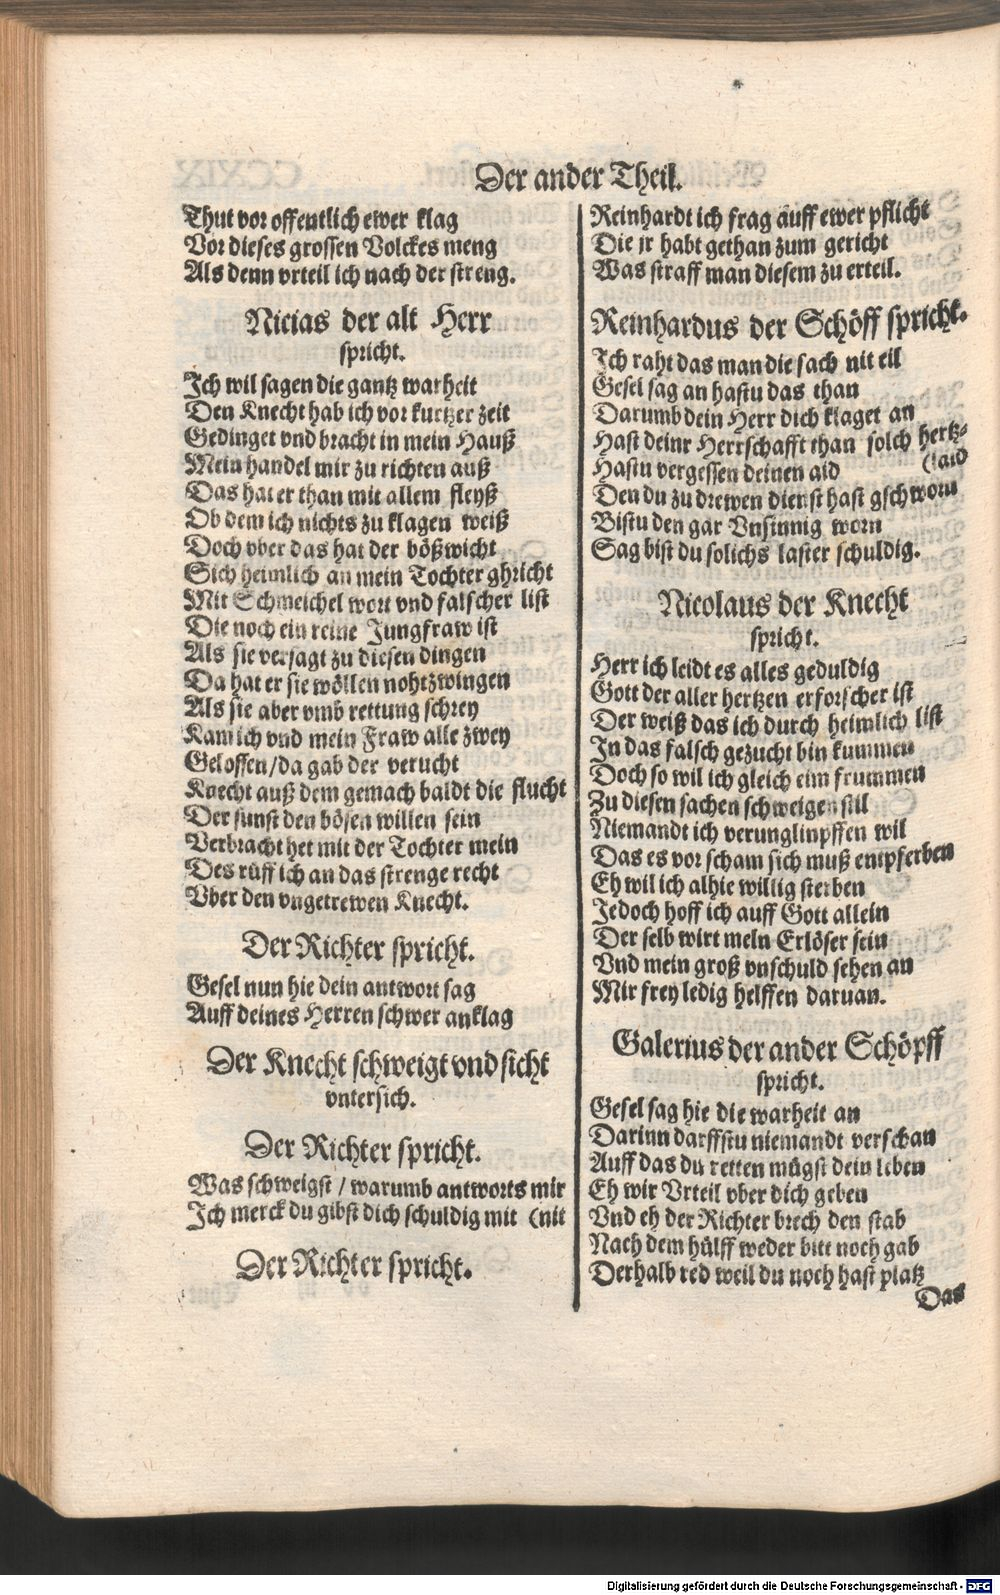 Der ander Theil.
Thut vor offentlich ewer klag
Vor dieses grossen Volckes meng
Als denn vrteil ich nach der streng.
Nicias der alt Herr
spricht.
Ich wil sagen die gantz warheit
Den Knecht hab ich vor kurtzer zeit
Gedinget vnd bracht in mein Hauß
Mein handel mir zu richten auß
Das hat er than mit allem fleyß
Ob dem ich nichts zu klagen weiß
Doch vber das hat der bößwicht
Sich heimlich an mein Tochter ghricht
Mit Schmeichel wort vnd falscher list
Die noch ein reine Jungfraw ist
Als sie versagt zu diesen dingen
Da hat er sie wöllen nohtzwingen
Als sie aber vmb rettung schrey
Kam ich vnd mein Fraw alle zwey
Geloffen/da gab der verucht
Knecht auß dem gemach baldt die flucht
Der sunst den bösen willen sein
Verbracht het mit der Tochter mein
Des rüff ich an das strenge recht
Vber den vngetrewen Knecht.
Der Richter spricht.
Gesel nun hie dein antwort sag
Auff deines Herren schwer anklag
Der Knecht schweigt vnd sicht
vntersich.
Der Richter spricht.
Was schweigst / warumb antworts mir
Ich merck du gibst dich schuldig mit (nit
Der Richter spricht.
Reinhardt ich frag auff ewer pflicht
Die jr habt gethan zum gericht
Was straff man diesem zu erteil.
Reinhardus der Schöff spricht.
Ich raht das man die sach nit eil
Gesel sag an hastu das than
Darumb dein Herr dich klaget an
Hast deinr Herrschafft than solch hertz-
Hastu vergessen deinen aid (laid
Den du zu drewen dienst hast gschworn
Bistu den gar Vnsinnig worn
Sag bist du solichs laster schuldig.
Nicolaus der Knecht
spricht.
Herr ich leidt es alles geduldig
Gott der aller hertzen erforscher ist
Der weiß das ich durch heimlich list
In das falsch gezucht bin kummen
Doch so wil ich gleich eim frummen
Zu diesen sachen schweigen stil
Niemandt ich verunglinpffen wil
Das es vor scham sich muß entpferben
Eh wil ich alhie willig sterben
Jedoch hoff ich auff Gott allein
Der selb wirt mein Erlöser sein
Vnd mein groß vnschuld sehen an
Mir frey ledig helffen daruan.
Galerius der ander Schöpff
spricht.
Gesel sag hie die warheit an
Darinn darffstu niemandt verschan
Auff das du retten mügst dein leben
Eh wir Vrteil vber dich geben
Vnd eh der Richter brech den stab
Nach dem hülff weder bitt noch gab
Derhalb red weil du noch hast platz
Das
Digitalisierung gefördert durch die Deutsche Forschungsgemeinschaft - DFG